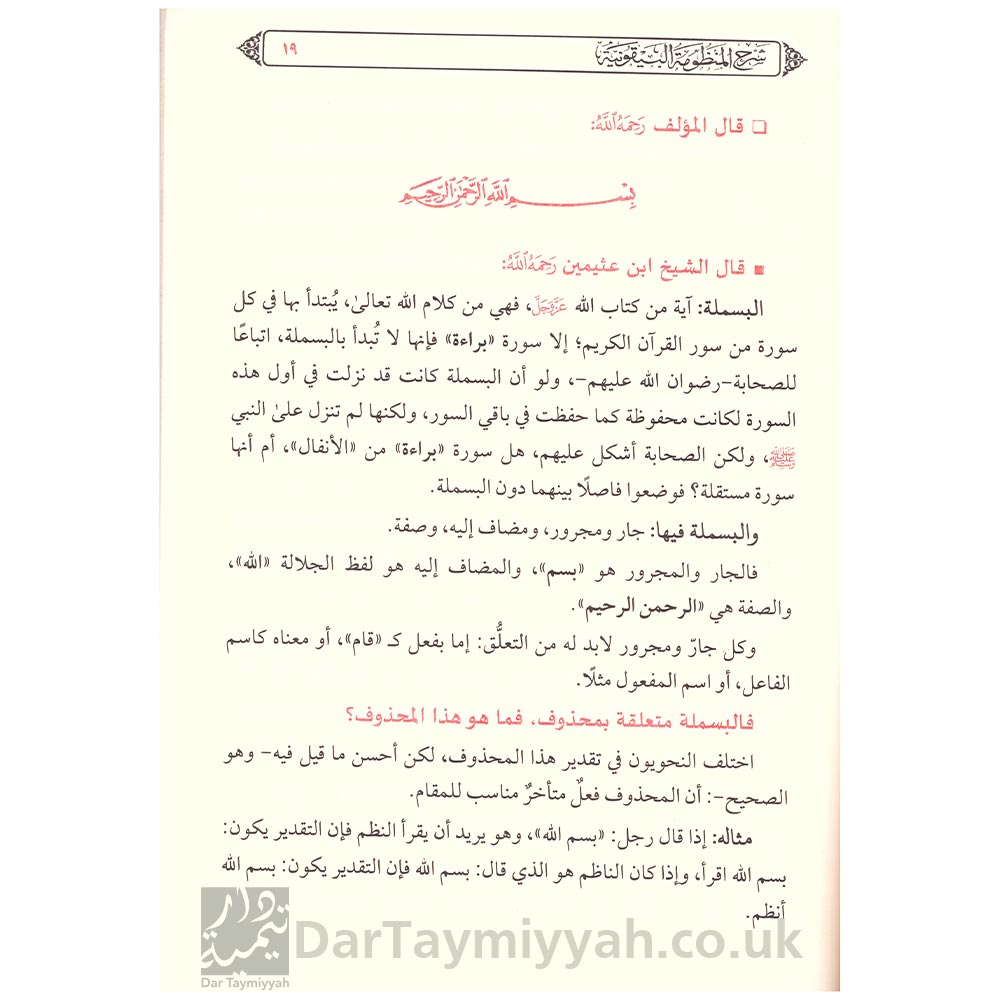 شرح المنظومة البيقونية
١٩
❑ قال المؤلف رَحِمَهُ ٱللَّهُ:
بِسْمِ اللَّهِ الرَّحْمَٰنِ الرَّحِيمِ
■ قال الشيخ ابن عثيمين رَحِمَهُ ٱللَّهُ:
البسملة: آية من كتاب الله عَزَّوَجَلَّ، فهي من كلام الله تعالىٰ، يُبتدأ بها في كل
سورة من سور القرآن الكريم؛ إلا سورة «براءة» فإنها لا تُبدأ بالبسملة، اتباعًا
للصحابة-رضوان الله عليهم-، ولو أن البسملة كانت قد نزلت في أول هذه
السورة لكانت محفوظة كما حفظت في باقي السور، ولكنها لم تنزل علىٰ النبي
ﷺ، ولكن الصحابة أشكل عليهم، هل سورة «براءة» من «الأنفال»، أم أنها
سورة مستقلة؟ فوضعوا فاصلًا بينهما دون البسملة.
والبسملة فيها: جار ومجرور، ومضاف إليه، وصفة.
فالجار والمجرور هو «بسم»، والمضاف إليه هو لفظ الجلالة «الله»،
والصفة هي «الرحمن الرحيم».
وكل جارّ ومجرور لابد له من التعلُّق: إما بفعل كـ «قام»، أو معناه كاسم
الفاعل، أو اسم المفعول مثلًا.
فالبسملة متعلقة بمحذوف، فما هو هذا المحذوف؟
اختلف النحويون في تقدير هذا المحذوف، لكن أحسن ما قيل فيه- وهو
الصحيح-: أن المحذوف فعلٌ متأخرٌ مناسب للمقام.
مثاله: إذا قال رجل: «بسم الله»، وهو يريد أن يقرأ النظم فإن التقدير يكون:
بسم الله اقرأ، وإذا كان الناظم هو الذي قال: بسم الله فإن التقدير يكون: بسم الله
أنظم.
دار تيمية
Dar Taymiyyah
DarTaymiyyah.co.uk